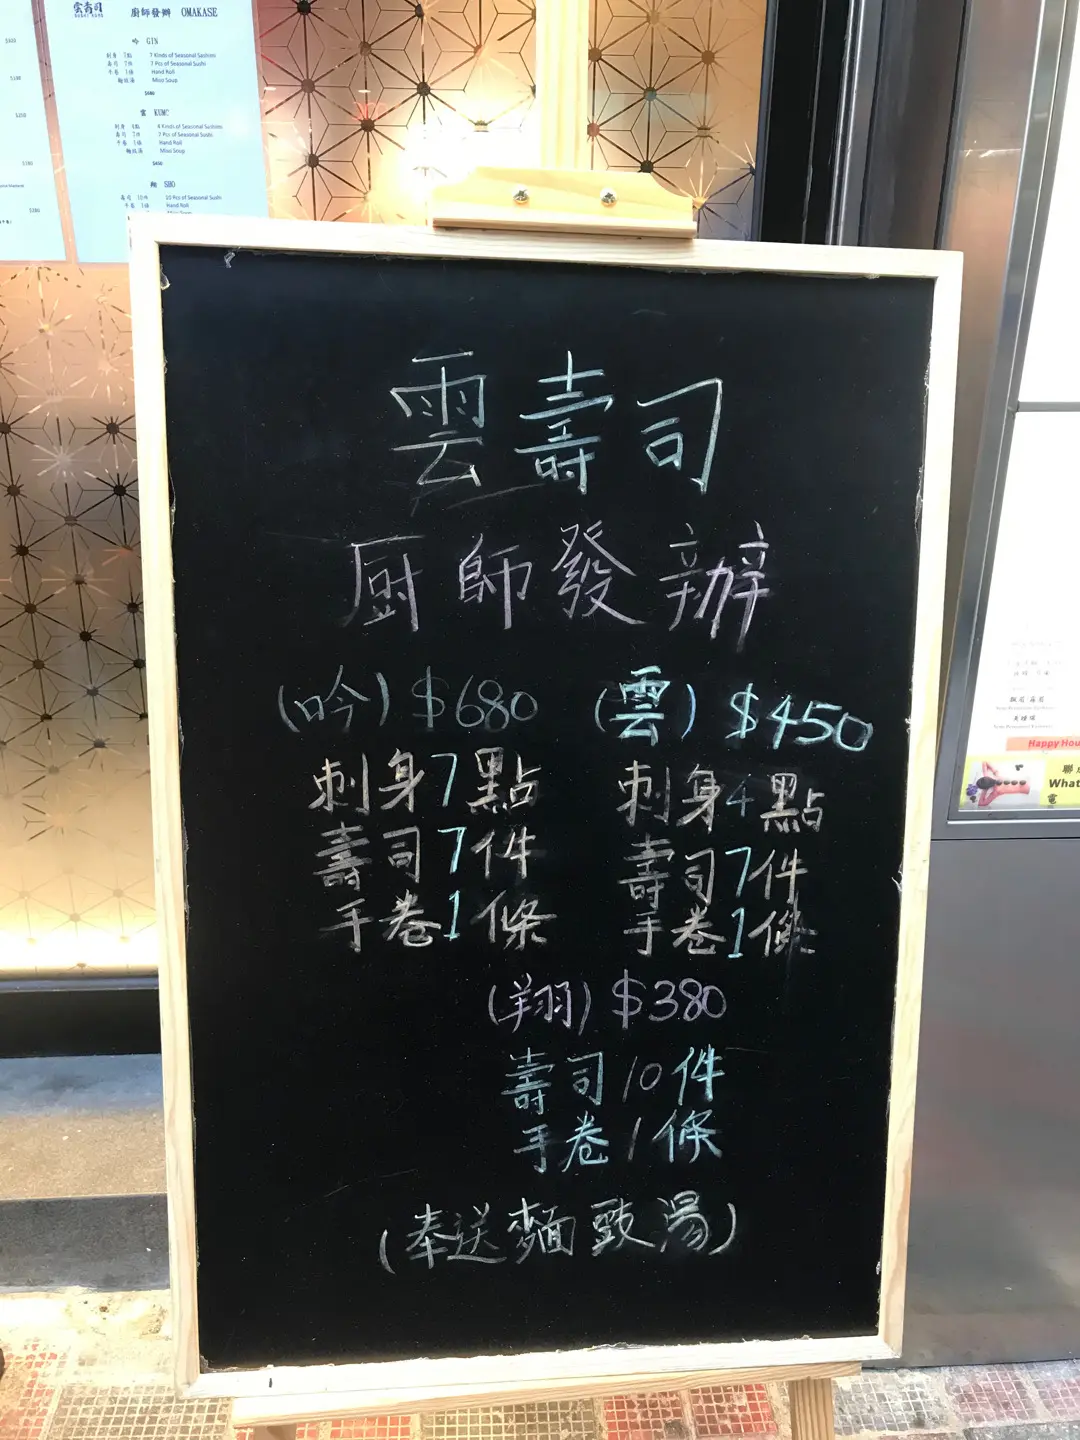 雲壽司
廚師發辦 OMAKASE
吟 GIN
刺身 7點 7 Kinds of Seasonal Sashimi
壽司 7件 7 Pcs of Seasonal Sushi
手卷 1條 Hand Roll
麵豉湯 Miso Soup
$680
雲 KUMO
刺身 4點 4 Kinds of Seasonal Sashimi
壽司 7件 7 Pcs of Seasonal Sushi
手卷 1條 Hand Roll
麵豉湯 Miso Soup
$450
翔 SHO
壽司 10件 10 Pcs of Seasonal Sushi
手卷 1條 Hand Roll
$380
$280
雲壽司
厨師發辦
(吟) $680 (雲) $450
刺身7點 刺身4點
壽司7件 壽司7件
手卷1條 手卷1條
(翔) $380
壽司10件
手卷1條
(奉送麵豉湯)
Happy Hou
What
電